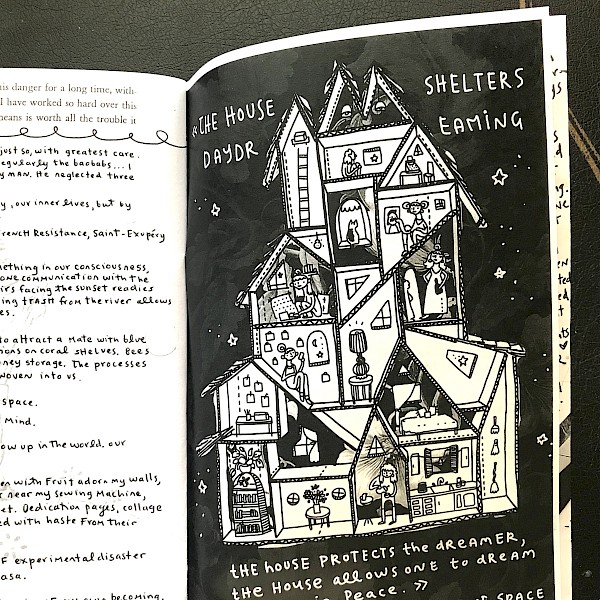 his danger for a long time, with-
I have worked so hard over this
means is worth all the trouble it
just so, with greatest care.
egularly the baobabs... I
y man. He neglected three
y, our inner lives, but by
French Resistance, Saint-Exupéry
mething in our consciousness,
one communication with the
irs facing the sunset readies
ing trash from the river allows
es.
to attract a mate with blue
mons on coral shelves. Bees
ney storage. The processes
woven into us.
space.
Mind.
ow up in the world. our
en with fruit adorn my walls,
r near my sewing machine,
et. Dedication pages, collage
ed with haste from their
F experimental disaster
asa.
becoming,
« THE HOUSE SHELTERS
DAYDR EAMING
the house PROTECTS the dreamer,
the House allows one to dream
in Peace. »
OF SPACE